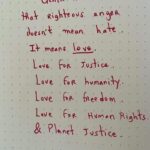 that righteous anger
doesn't mean hate.
It means love.
Love for Justice.
Love for humanity.
Love for freedom.
Love for Human Rights
& Planet Justice.